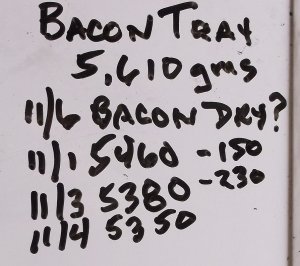 BACON TRAY
5,610 gms
11/6 BACON DRY?
11/1 5460 -150
11/3 5380 -230
11/4 5350